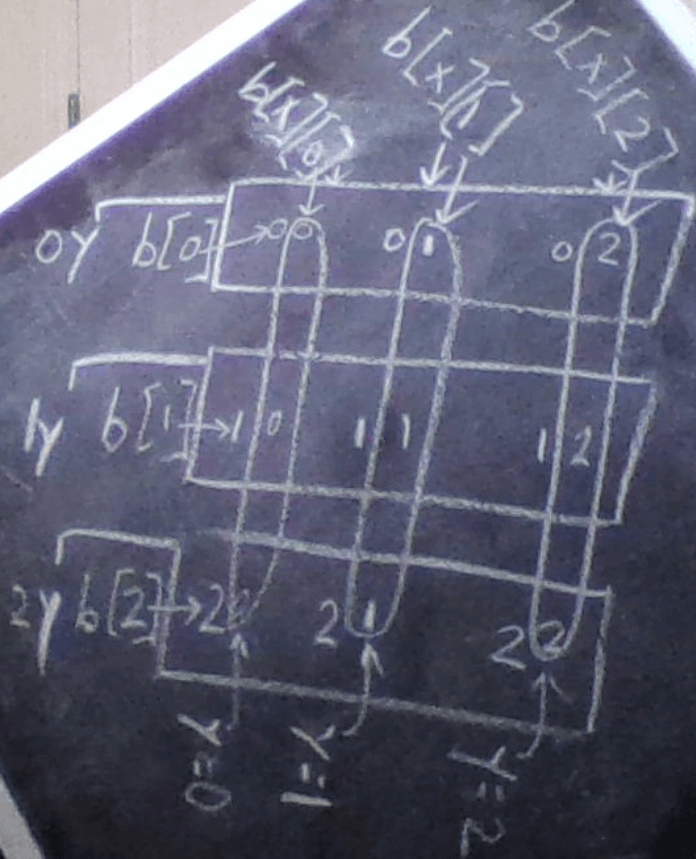 b[x][0] b[x][1] b[x][2]
0y b[0] 00 01 02
1y b[1] 10 11 12
2y b[2] 20 21 22
0=x 1=x 2=x